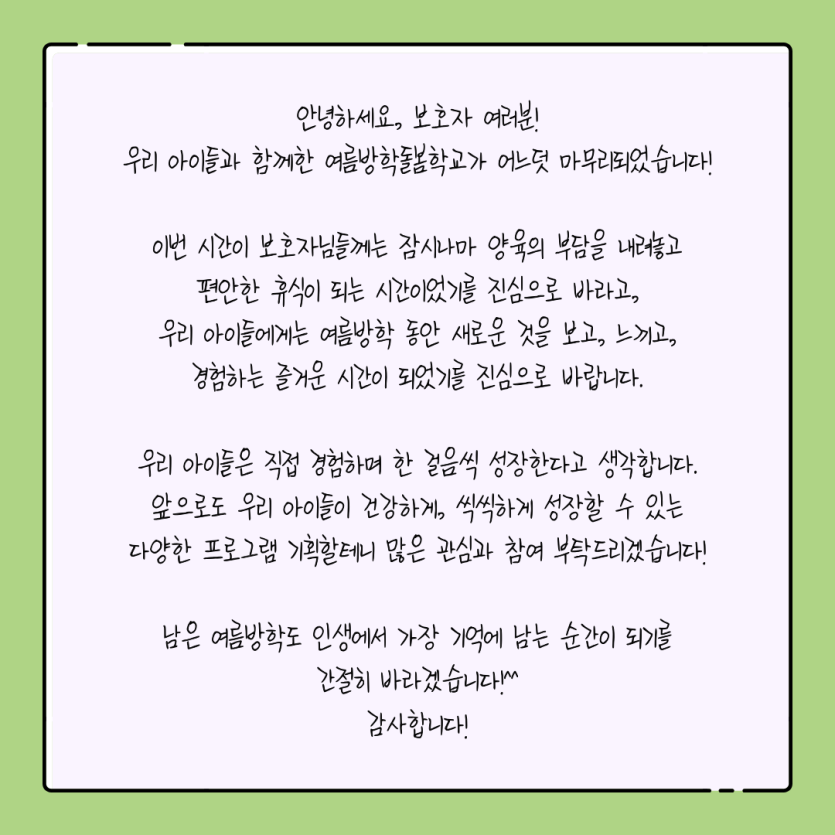 안녕하세요, 보호자 여러분!
우리 아이들과 함께한 여름방학돌봄학교가 어느덧 마무리되었습니다!
이번 시간이 보호자님들께는 잠시나마 양육의 부담을 내려놓고
편안한 휴식이 되는 시간이었기를 진심으로 바라고,
우리 아이들에게는 여름방학 동안 새로운 것을 보고, 느끼고,
경험하는 즐거운 시간이 되었기를 진심으로 바랍니다.
우리 아이들은 직접 경험하며 한 걸음씩 성장한다고 생각합니다.
앞으로도 우리 아이들이 건강하게, 씩씩하게 성장할 수 있는
다양한 프로그램 기획할테니 많은 관심과 참여 부탁드리겠습니다!
남은 여름방학도 인생에서 가장 기억에 남는 순간이 되기를
간절히 바라겠습니다!^^
감사합니다!